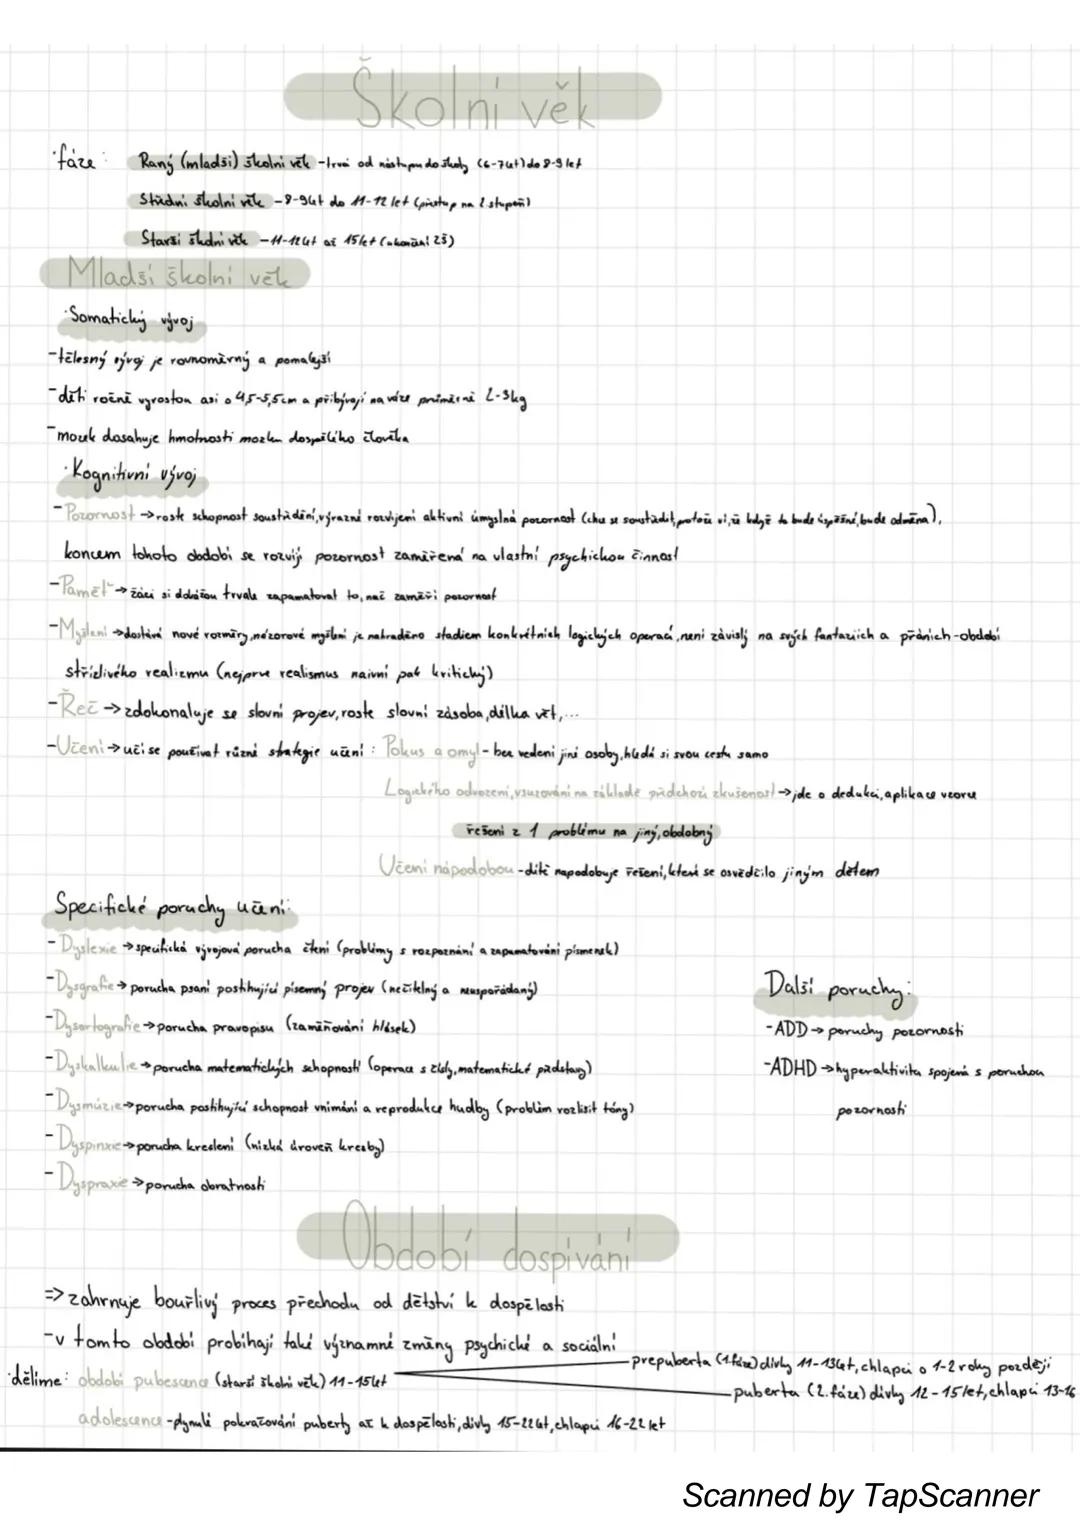 Školní věk
·fáze: Raný (mladší) školní věk - trvá od nástupu do školy (6-7let) do 8-9 let
Střední školní věk - 8-9let do 11-12 let (přestup na 2.stupeň)
Starší školní věk - 11-12let až 15let (ukončení ZŠ)
Mladší školní věk
·Somatický vývoj
-tělesný vývoj je rovnoměrný a pomalejší
-děti ročně vyrostou asi o 4,5-5,5cm a přibývají na váze průměrně 2-3kg
-mozek dosahuje hmotnosti mozku dospělého člověka
·Kognitivní vývoj
-Pozornost → roste schopnost soustředění, výrazné rozvíjení aktivní úmyslná pozornost (chce se soustředit, protože ví, že když to bude úspěšné, bude odměna),
koncem tohoto období se rozvíjí pozornost zaměřená na vlastní psychickou činnost
-Paměť → žáci si dokážou trvale zapamatovat to, nač zaměří pozornost
-Myšlení → dostává nové rozměry, názorové myšlení je nahrazeno stadiem konkrétních logických operací, není závislý na svých fantaziích a přáních - období
střízlivého realizmu (nejprve realismus naivní pak kritický)
-Řeč → zdokonaluje se slovní projev, roste slovní zásoba, délka vět,...
-Učení → učí se používat různé strategie učení: Pokus a omyl - bez vedení jiné osoby, hledá si svou cestu samo
Logického odvození, usuzování na základě předchozí zkušenosti → jde o dedukci, aplikace vzorce
řešení z 1 problému na jiný, obdobný
Učení nápodobou - dítě napodobuje řešení, které se osvědčilo jiným dětem
Specifické poruchy učení:
-Dyslexie → specifická vývojová porucha čtení (problémy s rozpoznání a zapamatování písmenek)
-Dysgrafie → porucha psaní postihující písemný projev (nečitelný a neuspořádaný)
-Dysortografie → porucha pravopisu (zaměňování hlásek)
-Dyskalkulie → porucha matematických schopností (operace s čísly, matematické představy)
-Dysmúzie → porucha postihující schopnost vnímání a reprodukce hudby (problém rozlišit tóny)
-Dyspinxie → porucha kreslení (nízká úroveň kresby)
-Dyspraxie → porucha obratnosti
Další poruchy:
-ADD → poruchy pozornosti
-ADHD → hyperaktivita spojená s poruchou
pozornosti
Období dospívání
=> zahrnuje bouřlivý proces přechodu od dětství k dospělosti
-v tomto období probíhají také významné změny psychické a sociální
·dělíme: období pubescence (starší školní věk) 11-15let
-prepuberta (1.fáze) dívky 11-13let, chlapci o 1-2 roky později
-puberta (2.fáze) dívky 12-15let, chlapci 13-16
adolescence - plynulé pokračování puberty až k dospělosti, dívky 15-22let, chlapci 16-22 let
Scanned by TapScanner